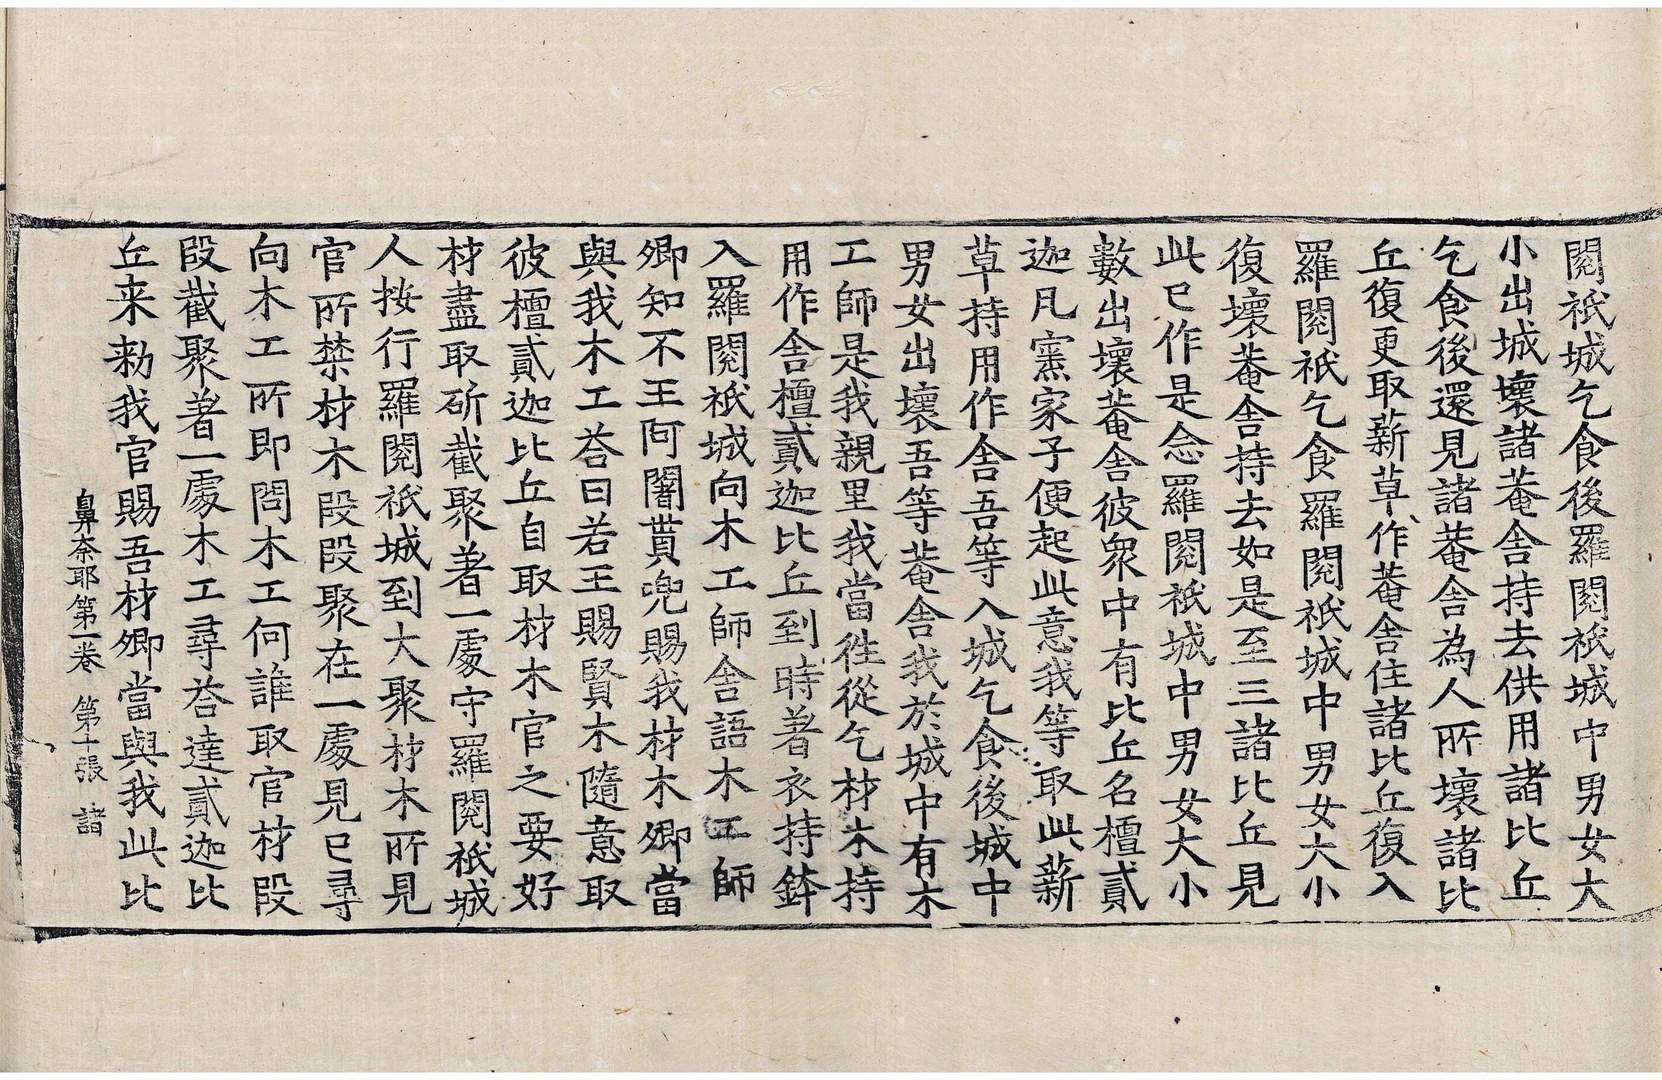 閱祇城乞食後羅閱祇城中男女大
小出城壞諸菴舍持去供用諸比丘
乞食後還見諸菴舍為人所壞諸比
丘復更取薪草作菴舍住諸比丘復入
羅閱祇乞食羅閱祇城中男女大小
復壞菴舍持去如是至三諸比丘見
此已作是念羅閱祇城中男女大小
數出壞菴舍彼衆中有比丘名檀貳
迦凡窯家子便起此意我等取此薪
草持用作舍吾等入城乞食後城中
男女出壞吾等菴舍我於城中有木
工師是我親里我當往從乞材木持
用作舍檀貳迦比丘到時著衣持鉢
入羅閱祇城向木工師舍語木工師
卿知不王阿闍貰兜賜我材木卿當
與我木工荅曰若王賜賢木隨意取
彼檀貳迦比丘自取材木官之要好
材盡取斫截聚著一處守羅閱祇城
人按行羅閱祇城到大聚材木所見
官所禁材木段段聚在一處見已尋
向木工所即問木工何誰取官材段
段截聚著一處木工尋荅達貳迦比
丘来勑我官賜吾材卿當與我此比
鼻奈耶第一卷 第十張 諸